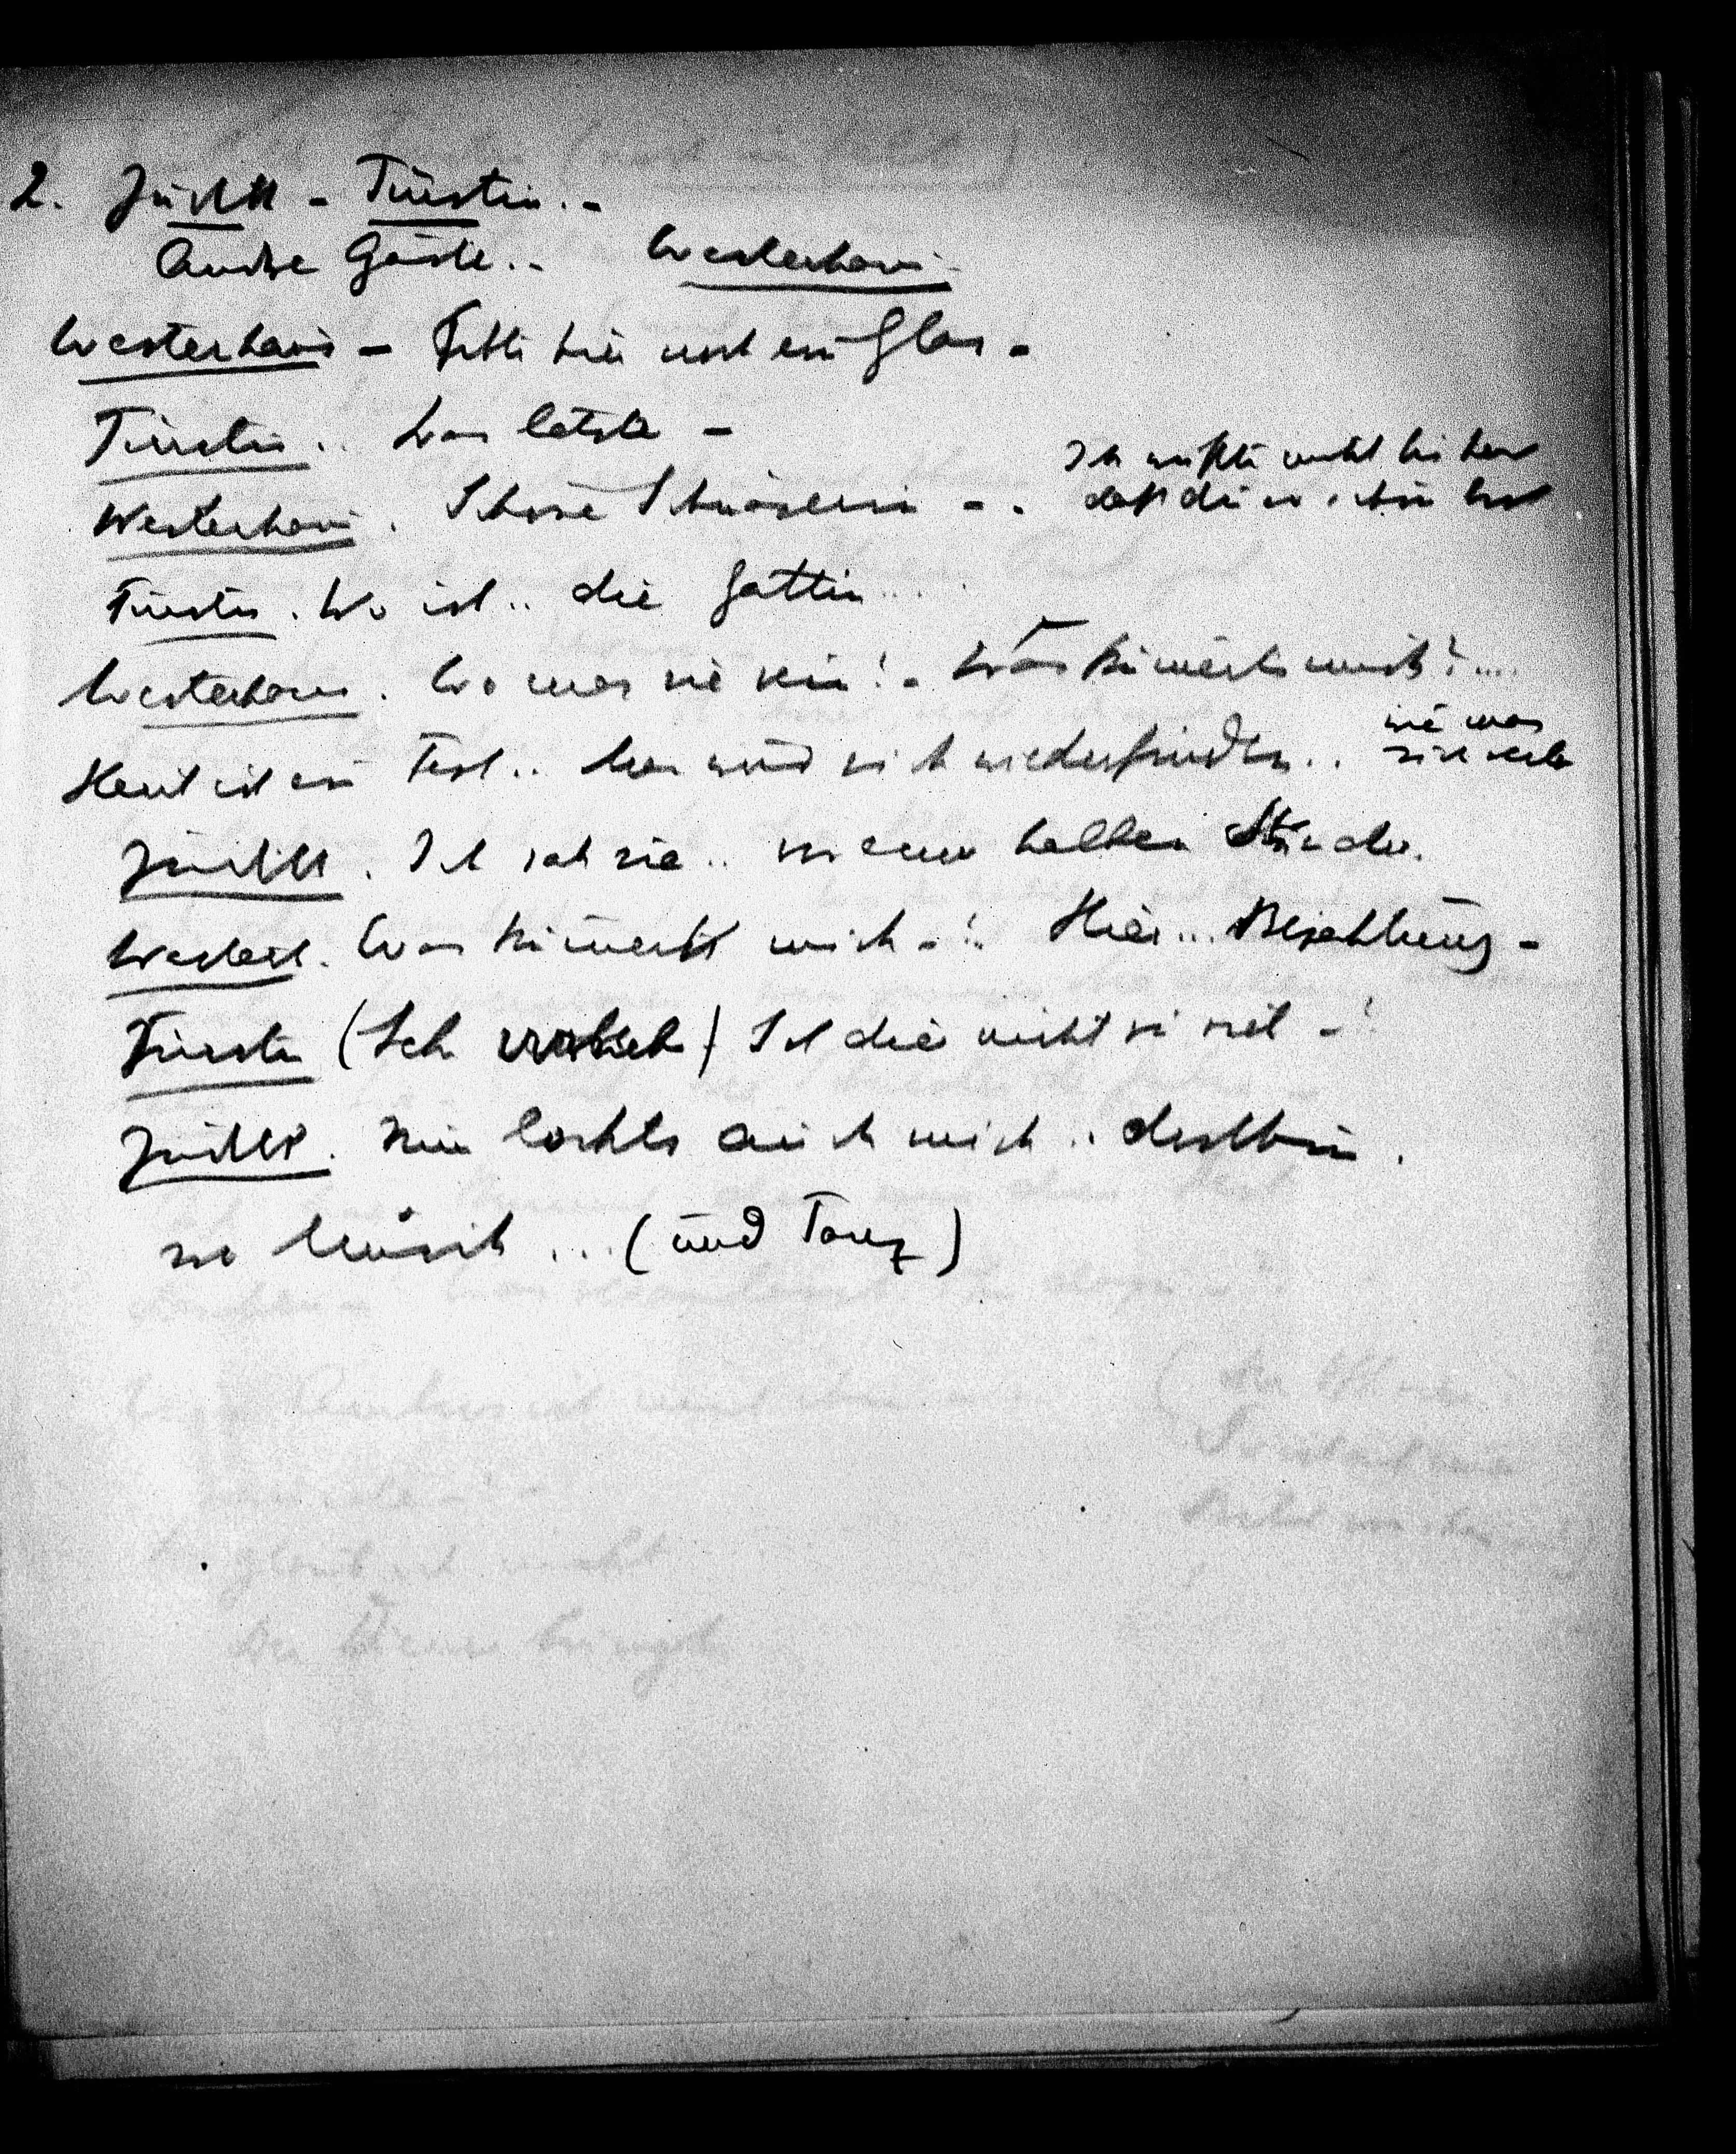 2. Judith - Fürstin. -
Andre Gäste.. Westerhaus.
Westerhaus - Fehlt hier noch ein Glas -
Fürstin.. Das letzte -
Westerhaus. Schöne Schwägerin -. Ich wußte nicht bisher
daß du so schön bist
Fürstin. Wo ist.. die Gattin...
Westerhaus. Wo mag sie sein! - Was kümerts mich!....
Heut ist ein Fest.. Man wird sich wiederfinden.. wie man
sich verlor
Judith. Ich sah sie.. vor einer halben Stunde.
Westerh. Was kümerts mich -!.. Hier... Bezahlung -
Fürstin (Ich) Ist dir nicht zu viel -!
Judith. Nun lockts auch mich.. dorthin.
zur Musik... (und Tanz)